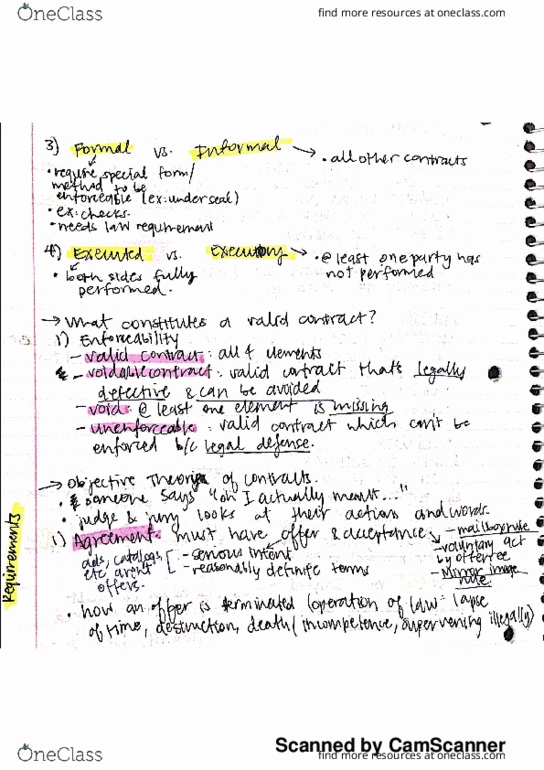 OneClass
find more resources at oneclass.com
3) Formal vs. Informal → • all other contracts
• require special form/
method to be
enforceable (ex: under seal)
• ex: checks.
• needs law requirement
4) Executed vs. Executory → • @ least one party has
not performed
• both sides fully
performed.
→ What constitutes a valid contract?
1) Enforceability
- valid contract: all 4 elements
- voidable contract: valid contract that's legally
defective & can be avoided
- void: @ least one element is missing
- unenforceable: valid contract which can't be
enforced b/c legal defense.
→ Objective Theory of contracts.
• someone says "oh I actually meant..."
• judge & jury looks at their actions and words.
Requirements
1) Agreement: must have offer & acceptance
- mailbox rule
- voluntary act
by offeree
- Mirror image
rule
ads, catalogs,
etc. arent
offers.
- serious intent
- reasonably definite terms
• how an offer is terminated (operation of law = lapse
of time, destruction, death/incompetence, supervening illegality)
Scanned by CamScanner
OneClass
find more resources at oneclass.com